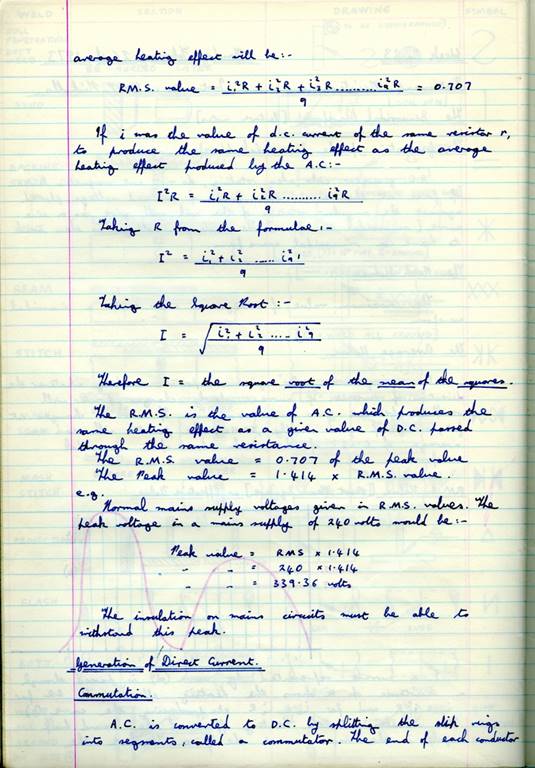 average heating effect will be:-
R.M.S. value = i₁²R + i₂²R + i₃²R ......... i₉²R / 9 = 0.707
If i was the value of d.c. current of the same resistor r,
to produce the same heating effect as the average
heating effect produced by the A.C:-
I²R = i₁²R + i₂²R .......... i₉²R / 9
Taking R from the formulae:-
I² = i₁² + i₂² ..... i₉² / 9
Taking the Square Root :-
I = √ i₁² + i₂² .... i₉² / 9
Therefore I = the square root of the mean of the squares.
The R.M.S. is the value of A.C. which produces the
same heating effect as a given value of D.C. passed
through the same resistance.
The R.M.S. value = 0.707 of the peak value
The Peak value = 1.414 x R.M.S. value.
e.g.
Normal mains supply voltages given in R.M.S. values. The
peak voltage in a mains supply of 240 volts would be:-
Peak value = RMS x 1.414
" " = 240 x 1.414
" " = 339.36 volts
The insulation on mains circuits must be able to
withstand this peak.
Generation of Direct Current.
Commutation.
A.C. is converted to D.C. by splitting the slip rings
into segments, called a commutator. The end of each conductor